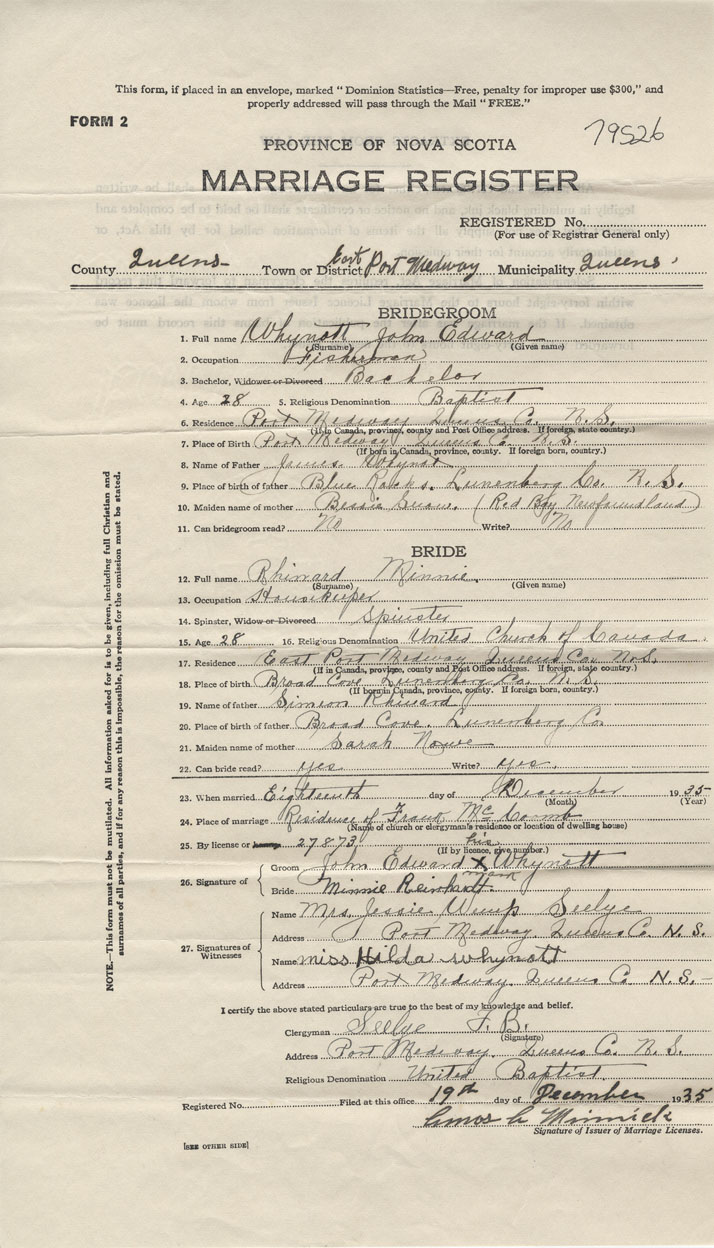 This form, if placed in an envelope, marked “Dominion Statistics—Free, penalty for improper use $300,” and
properly addressed will pass through the Mail “FREE.”
FORM 2
79526
PROVINCE OF NOVA SCOTIA
MARRIAGE REGISTER
REGISTERED No.
(For use of Registrar General only)
County Queens Town or District East Port Medway Municipality Queens
BRIDEGROOM
1. Full name Whynott John Edward
(Surname) (Given name)
2. Occupation Fisherman
3. Bachelor, Widower or Divorced Bachelor
4. Age 28 5. Religious Denomination Baptist
6. Residence Port Medway Queens Co. N. S.
(If in Canada, province, county and Post Office address. If foreign, state country.)
7. Place of Birth Port Medway Queens Co. N. S.
(If born in Canada, province, county. If foreign born, country.)
8. Name of Father James Whynot
9. Place of birth of father Blue Rocks. Lunenberg Co. N. S.
10. Maiden name of mother Bessie Snow. (Red Bay Newfoundland)
11. Can bridegroom read? No Write? No
BRIDE
12. Full name Rhinard Minnie
(Surname) (Given name)
13. Occupation Housekeeper
14. Spinster, Widow or Divorced Spinster
15. Age 28 16. Religious Denomination United Church of Canada.
17. Residence East Port Medway Queens Co. N. S.
(If in Canada, province, county and Post Office address. If foreign, state country.)
18. Place of birth Broad Cove Lunenberg Co. N. S.
(If born in Canada, province, county. If foreign born, country.)
19. Name of father Simeon Rhinard
20. Place of birth of father Broad Cove. Lunenberg Co.
21. Maiden name of mother Sarah Nowe
22. Can bride read? yes Write? yes.
23. When married Eighteenth day of December 1935
(Month) (Year)
24. Place of marriage Residence of Frank McComb
(Name of church or clergyman's residence or location of dwelling house)
25. By license or banns 27873
(If by licence, give number.)
26. Signature of
his
Groom John Edward X Whynott
mark
Bride Minnie Reinhardt
27. Signatures of Witnesses
Name Mrs. Jessie Seelye
Address Port Medway. Queens Co. N. S.
Name miss Hilda whynott
Address Port Medway. Queens Co N. S.
I certify the above stated particulars are true to the best of my knowledge and belief.
Clergyman Seelye F. B.
(Signature)
Address Port Medway. Queens Co. N. S.
Religious Denomination United Baptist
Registered No. Filed at this office 19th day of December 1935
Amos C Minnick
Signature of Issuer of Marriage Licenses.
[SEE OTHER SIDE]
NOTE.—This form must not be mutilated. All information asked for is to be given, including full Christian and
surnames of all parties, and if for any reason this is impossible, the reason for the omission must be stated.